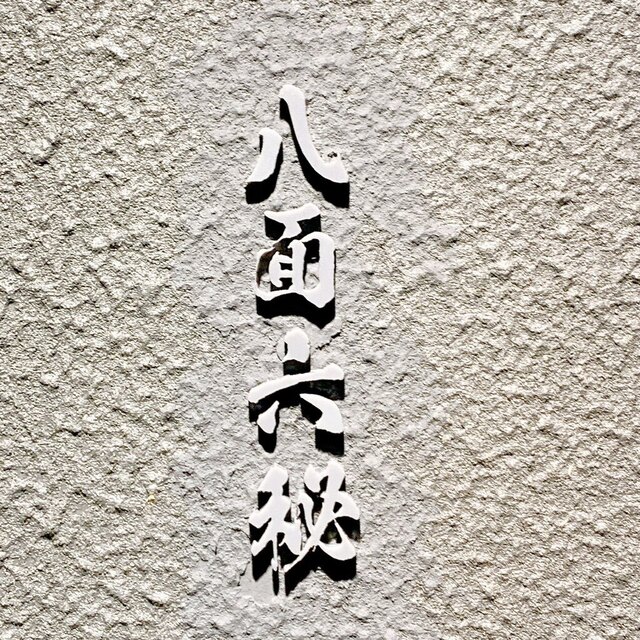 八面六秘